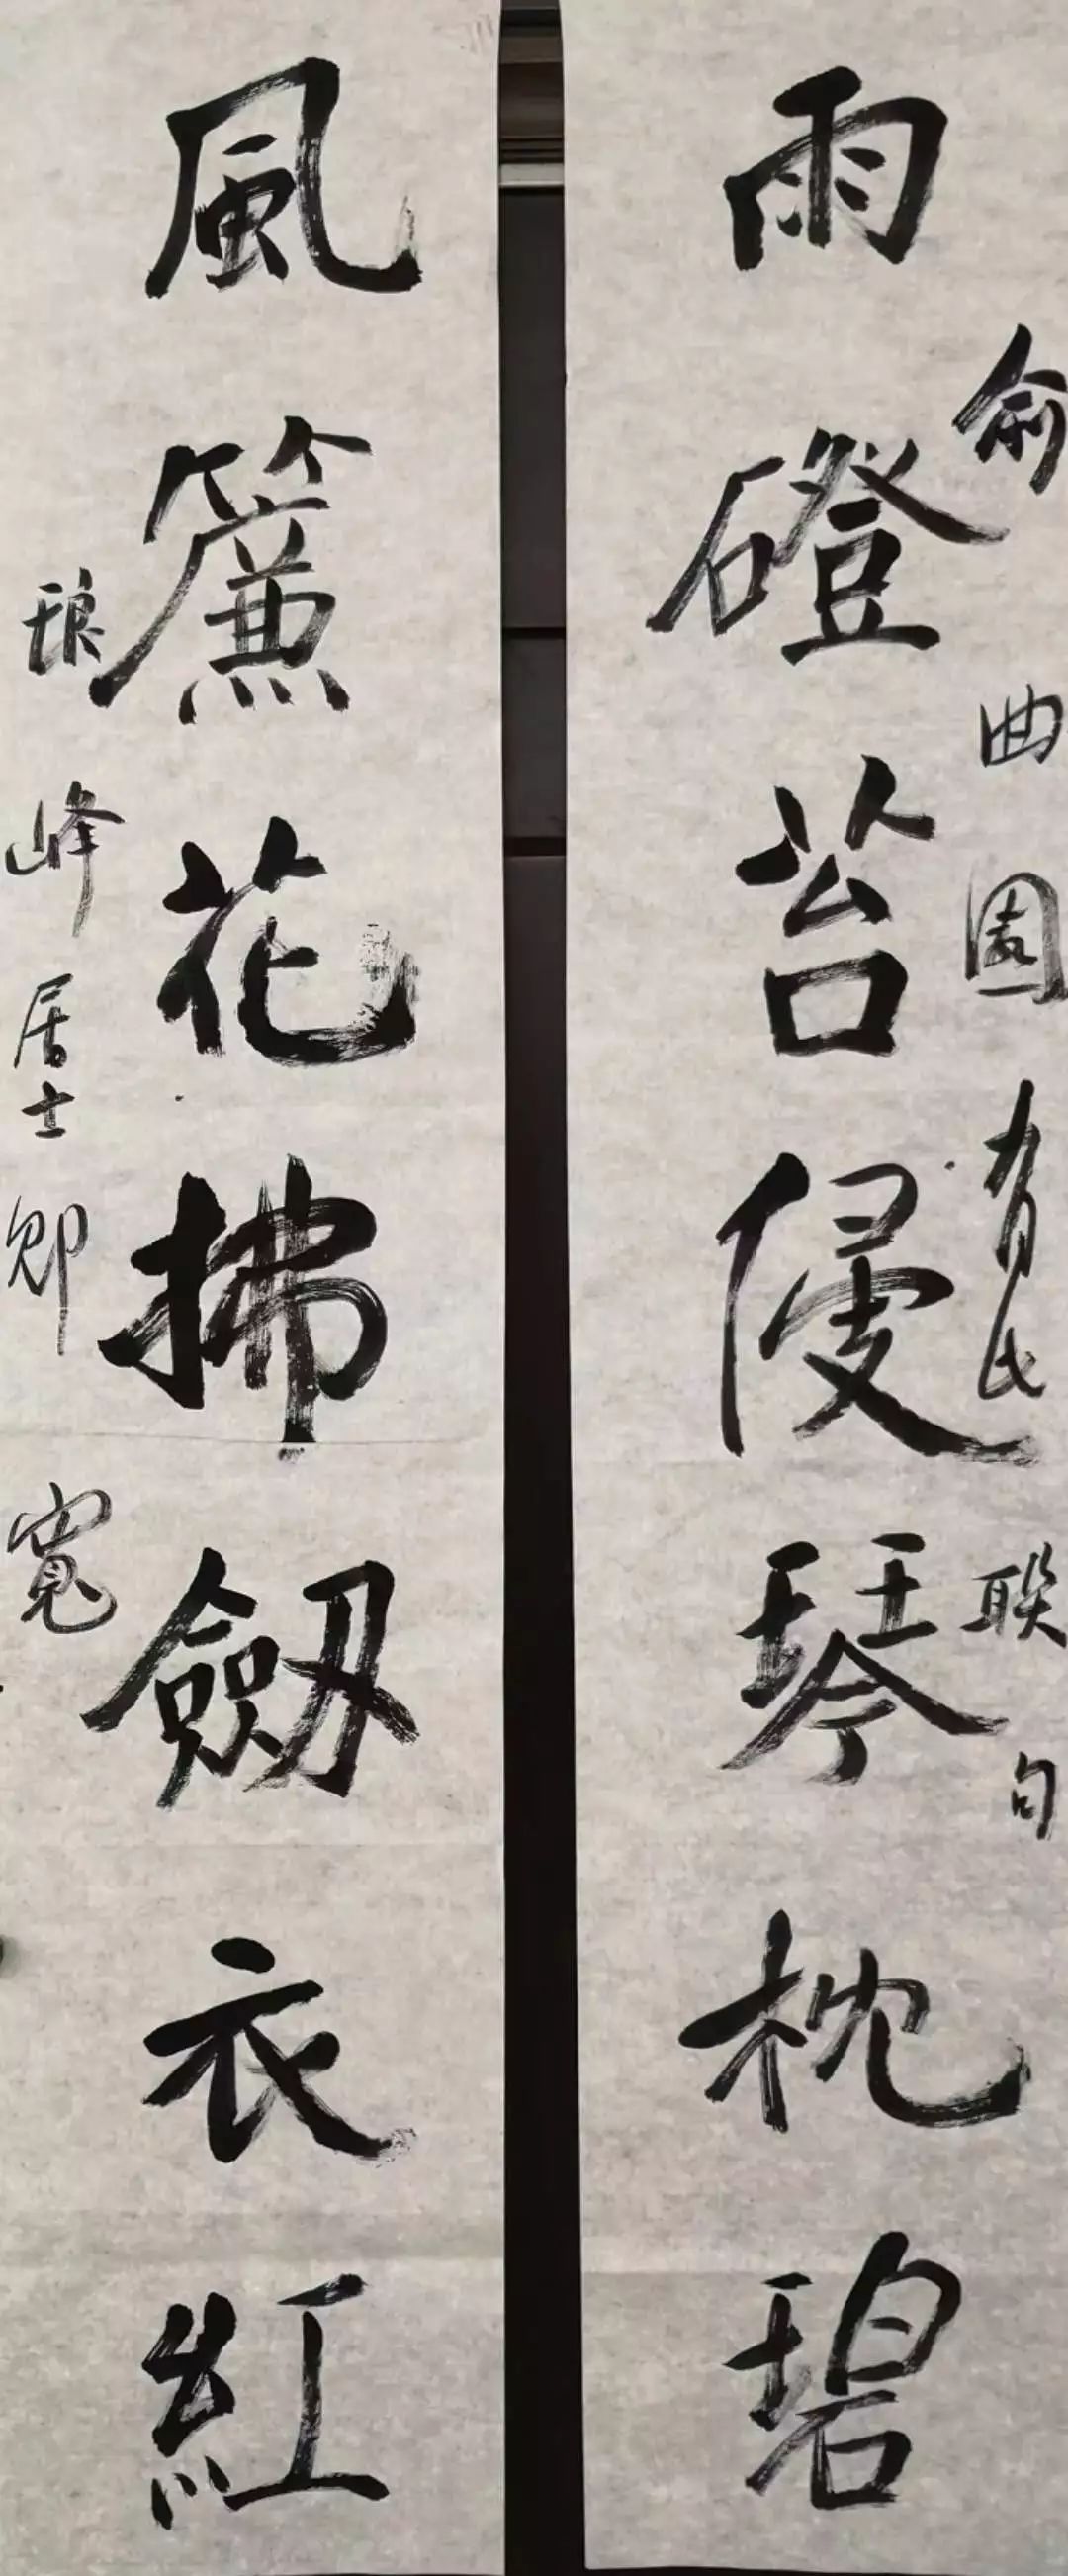 雨磴苔侵琴枕碧
俞曲園有此聯句
風簾花拂劔衣紅
琅峰居士卿寬